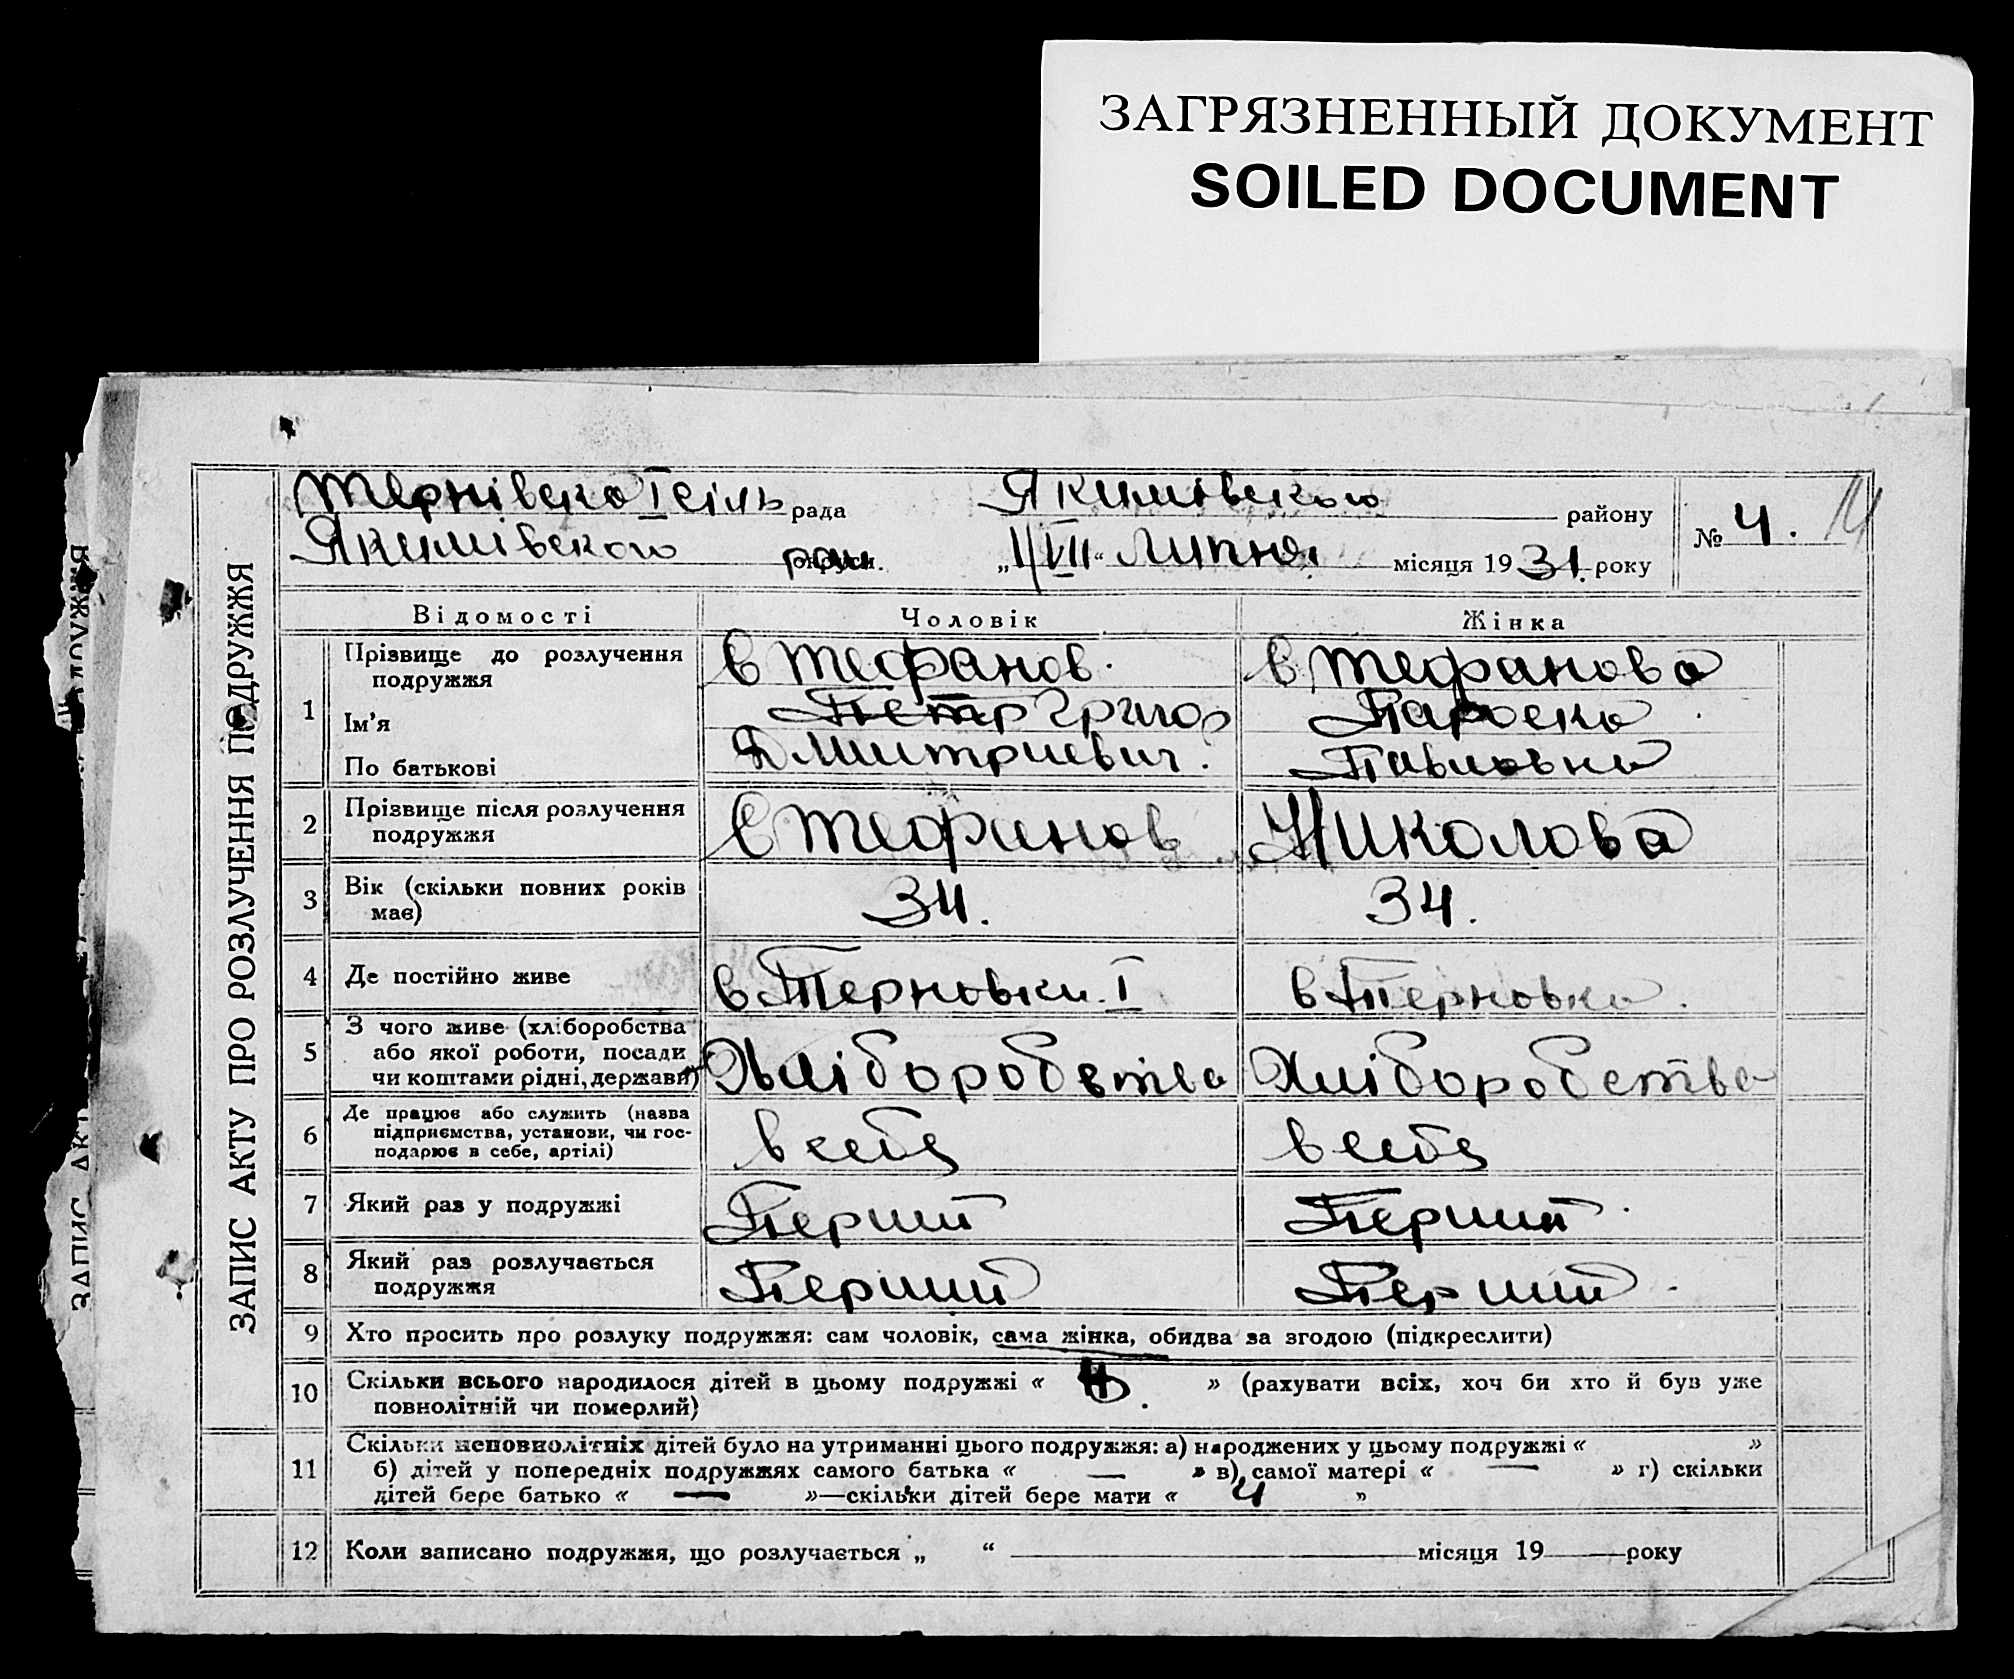 ЗАГРЯЗНЕННЫЙ ДОКУМЕНТ
SOILED DOCUMENT
Тернівска І сіль рада Якимівского району № 4. 14
Якимівского рай. округи „1/VII“ Липня місяця 1931. року
ЗАПИС АКТУ ПРО РОЗЛУЧЕННЯ ПОДРУЖЖЯ
Відомості Чоловік Жінка
1 Прізвище до розлучення подружжя Стефанов. Стефанова
Ім'я Петр Григор Параска
По батькові Дмитриевич. Павловна
2 Прізвище після розлучення подружжя Стефанов Николова
3 Вік (скільки повних років має) 34. 34.
4 Де постійно живе в Терновки. І в Терновка.
5 З чого живе (хліборобства або якої роботи, посади чи коштами рідні, держави) Хліборобства Хліборобства
6 Де працює або служить (назва підприємства, установи, чи господарює в себе, артілі) в себе в себе
7 Який раз у подружжі Перший Перший.
8 Який раз розлучається подружжя Перший Перший.
9 Хто просить про розлуку подружжя: сам чоловік, сама жінка, обидва за згодою (підкреслити)
10 Скільки всього народилося дітей в цьому подружжі « » (рахувати всіх, хоч би хто й був уже
повнолітній чи померлий)
11 Скільки неповнолітніх дітей було на утриманні цього подружжя: а) народжених у цьому подружжі « »
б) дітей у попередніх подружжях самого батька « — » в) самої матері « — » г) скільки
дітей бере батько « — »—скільки дітей бере мати « 4 »
12 Коли записано подружжя, що розлучається „ “ місяця 19 року